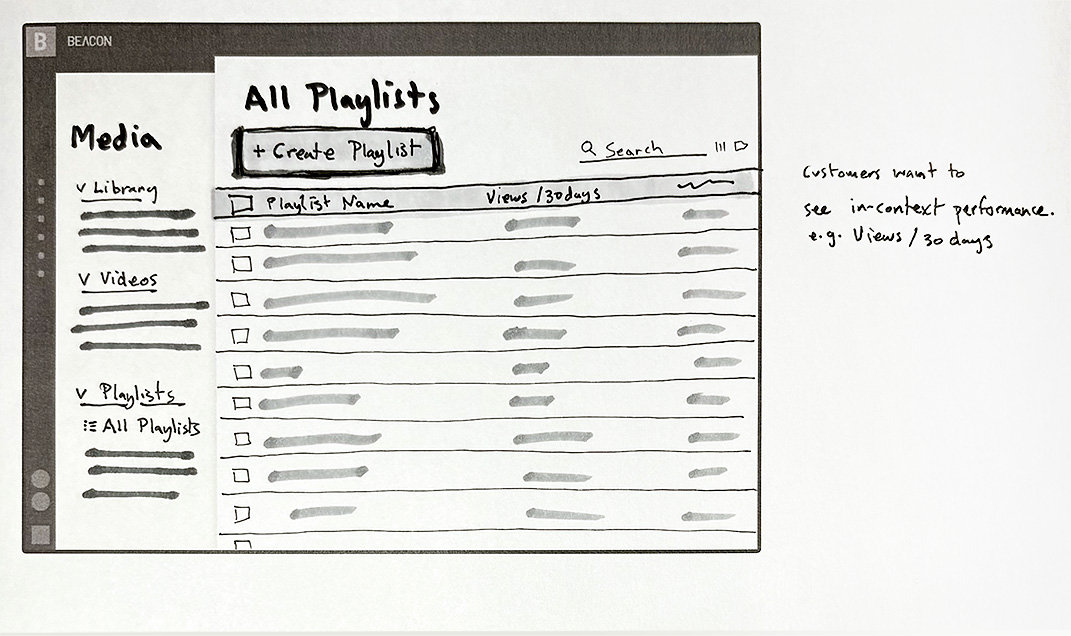 B BEACON
Media
v Library
v Videos
v Playlists
All Playlists
All Playlists
+ Create Playlist
Search
Playlist Name Views / 30 days
Customers want to
see in-context performance.
e.g. Views / 30 days